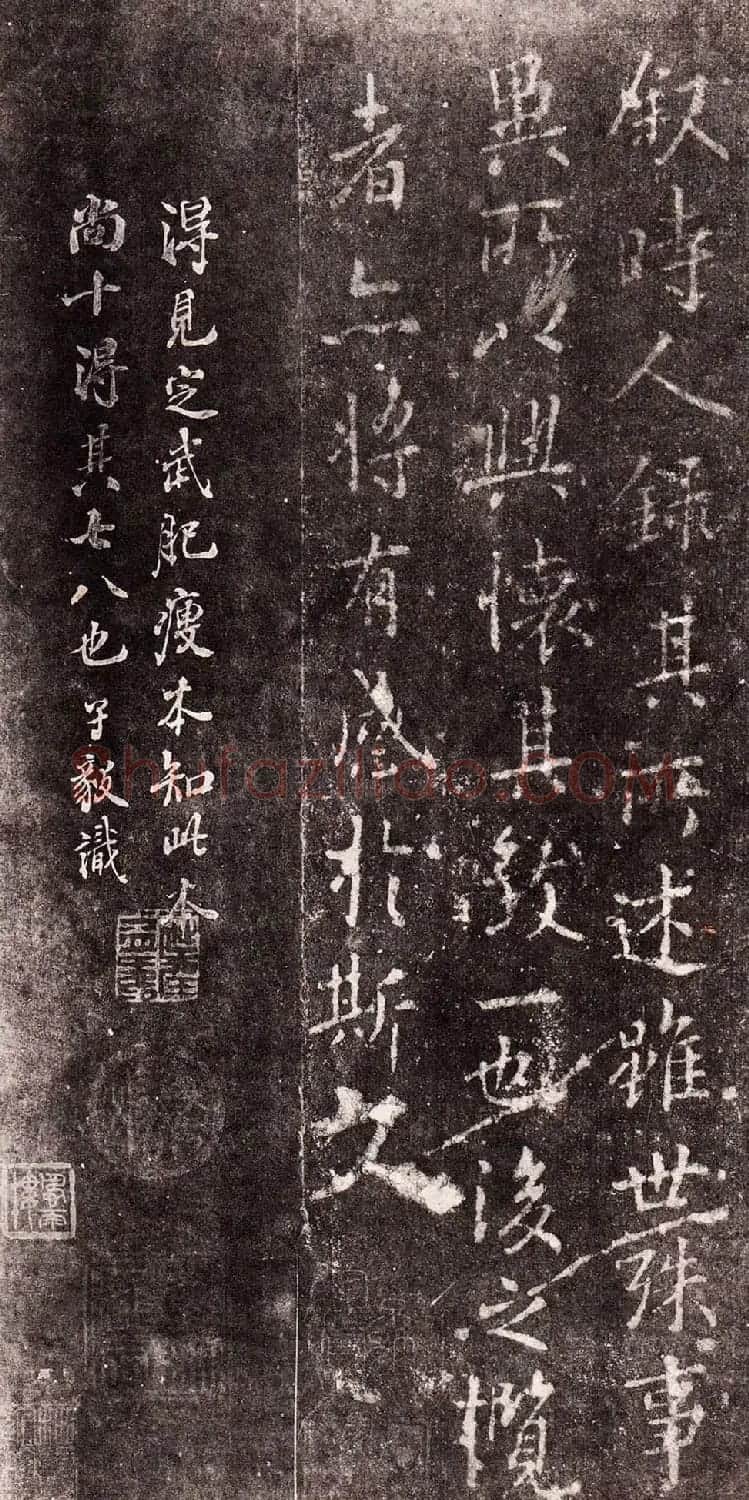 叙時人録其所述雖世殊事
異所以興懷其致一也後之攬
者亦將有感於斯文
得見定武肥瘦本知此本
尚十得其七八也子毅識
Shufaziliao.COM